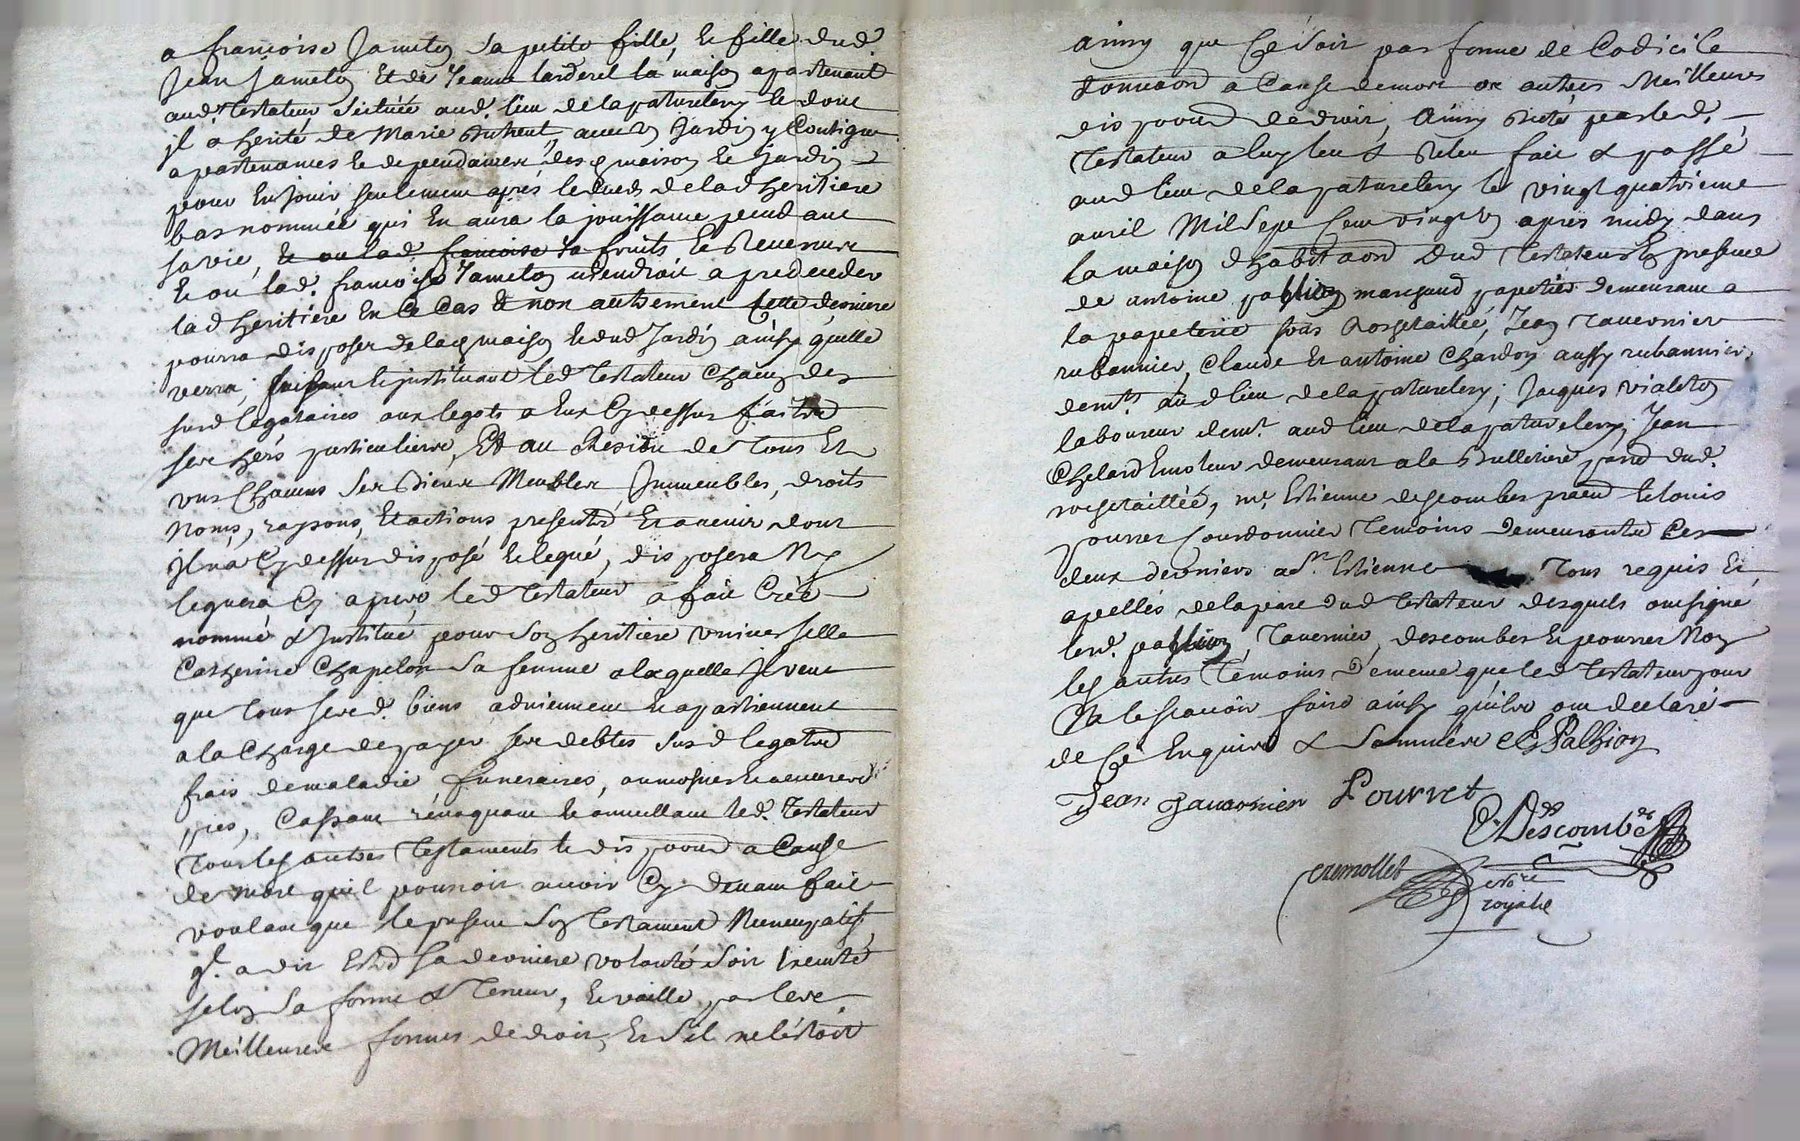 a francoise Jameton sa petite fille, et fille dud.
Jean Jameton et de Jeanne larderel la maison apartenant
aud. testateur scituée aud. lieu de lapaturelery et dont
jl a herité de Marie dutreut, avec un Jardin y Contigue
apartenances et dependances desq maison et Jardin
pour En jouir seulement après le deceds de lad heritiere
bas nommée qui En aura la jouissance pendant
sa vie, et ou lad. francoise Ja fruits et Revenus
Et ou lad. francoise Jameton viendroit a predeceder
lad heritiere En Ce Cas & non autrement Cette derniere
pourra disposer de lad maison et dud Jardin ainsy quelle
verra; faisant et jnstituant led testateur Chacun des
susd legataires aux legats a Eux Cy dessus faits
ses hers particuliers, Et au Residu de tous Et
uns Chacuns ses Biens Meubles Jmmeubles, droits
Noms, raysons, Et actions presents Et avenir dont
jl na Cy dessus disposé et legué, disposera Ny
leguera Cy apres led testateur a fait Créé
nommé & Jnstitué pour son heritiere universelle
Catherine Chapelon sa femme a laquelle jl veut
que tous sesd. biens adviennent et apartiennent
a la Charge de payer ses debtes susd legats
frais de maladie, funeraires, aumosnes et oeuvres
pies, Cassant révoquant et annullant led. testateur
tous les autres testaments et dispoons a Cause
de mort quil pourroit avoir Cy devant fait
voulant que le present son testament Nuncupatif
ql. a dit Estre sa derniere volonté soit Executé
selon sa forme & teneur, et vaille par les
Meilleures formes de droit, Et sil ne léstoit
ainsy que Ce soit par forme de Codicile
donnaon a Cause de mort ou autres Meilleures
dispoons de droit, Ainsy Dicté par led.
testateur a luy leu & Releu fait & passé
aud lieu de lapaturelery le vingt quatrieme
avril Mil Sept Cent vingt un après midy dans
la maison dhabitaon dud testateur En presence
de antoine palhion marchand papetier demeurant a
la papeterie sous Rochetaillée, Jean tavernier
rubannier, Claude et antoine Chardon aussy rubanniers,
demts. aud lieu de lapaturelery; Jacques vialeton
laboureur demt. aud lieu de lapaturelery, Jean
Chelard Emoleur demeurant a la Bulleriere parr dud.
rochetaillée, me. Estienne descombes prend et louis
pourret Cordonnier temoins demeurants Ces
deux derniers a St. Estienne tous requis Et
apellés de la part dud testateur desquels ont signé
lesd. palhion, tavernier, descombes et pourret Non
les autres temoins de meme que led testateur pour
Ne le scavoir faire ainsy quils ont declaré
de Ce Enquis & Sommés A Palhion
Jean Tavarnier Pourret
E Descombes
Cremollet
Nore
royal